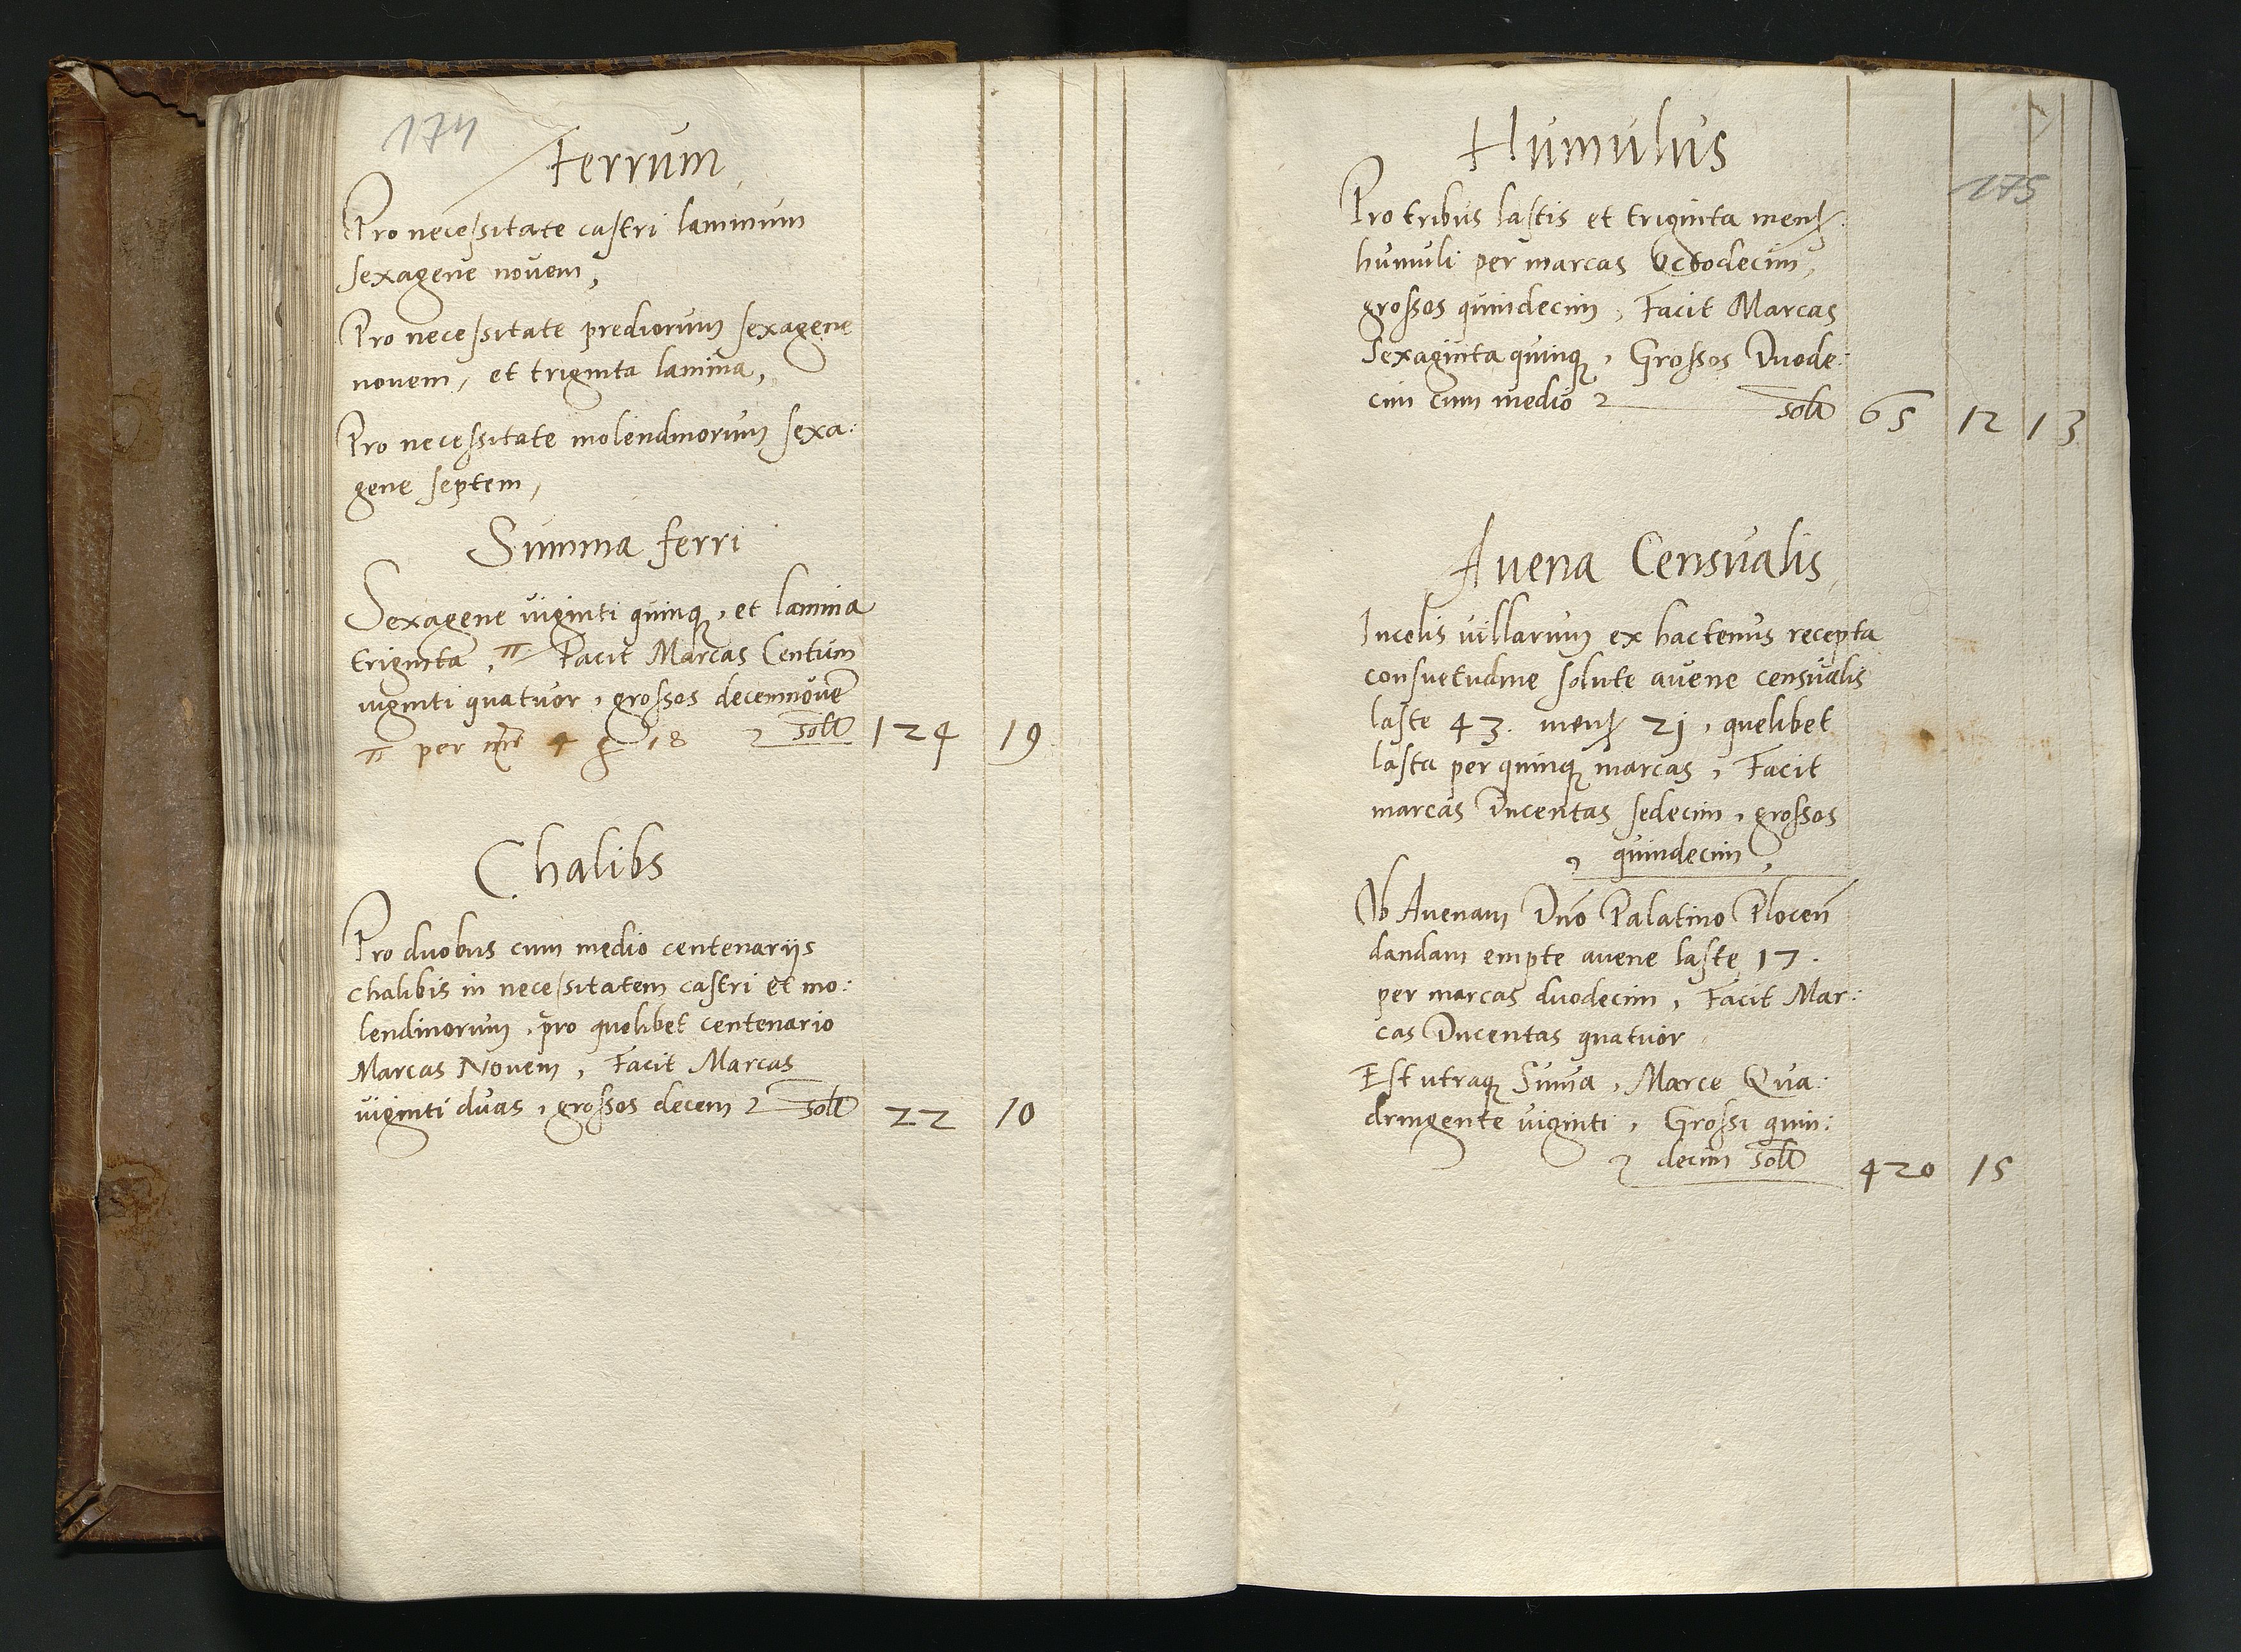 174
Ferrum
Pro necessitate castri laminum
sexagene novem,
Pro necessitate prediorum sexagene
novem, et triginta lamina,
Pro necessitate molendinorum sexa:
gene septem,
Summa ferri
Sexagene viginti quinq, et lamina
triginta, π Facit Marcas Centum
viginti quatuor, grossos decemnove
π per 4 g 18 solt 124 19
Chalibs
Pro duobus cum medio centenarijs
chalibis in necessitatem castri et mo:
lendinorum, pro quolibet centenario
Marcas Novem, Facit Marcas
viginti duas, grossos decem solt 22 10
175
Humulus
Pro tribus lastis et triginta mens
humuli per marcas Octodecim,
grossos quindecim, Facit Marcas
Sexaginta quinq, Grossos Duode:
cim cum medio solt 65 12 13
Avena Censualis
Incolis villarum ex hactenus recepta
consuetudine solute avene censualis
laste 43. mens 21, quelibet
lasta per quinq marcas, Facit
marcas Ducentas sedecim, grossos
quindecim,
Ob Avenam Dno Palatino Plocen
dandam empte avene laste 17.
per marcas duodecim, Facit Mar:
cas Ducentas quatuor
Est utraq Suma, Marce Qua:
dringente viginti, Grossi quin:
decim solt 420 15